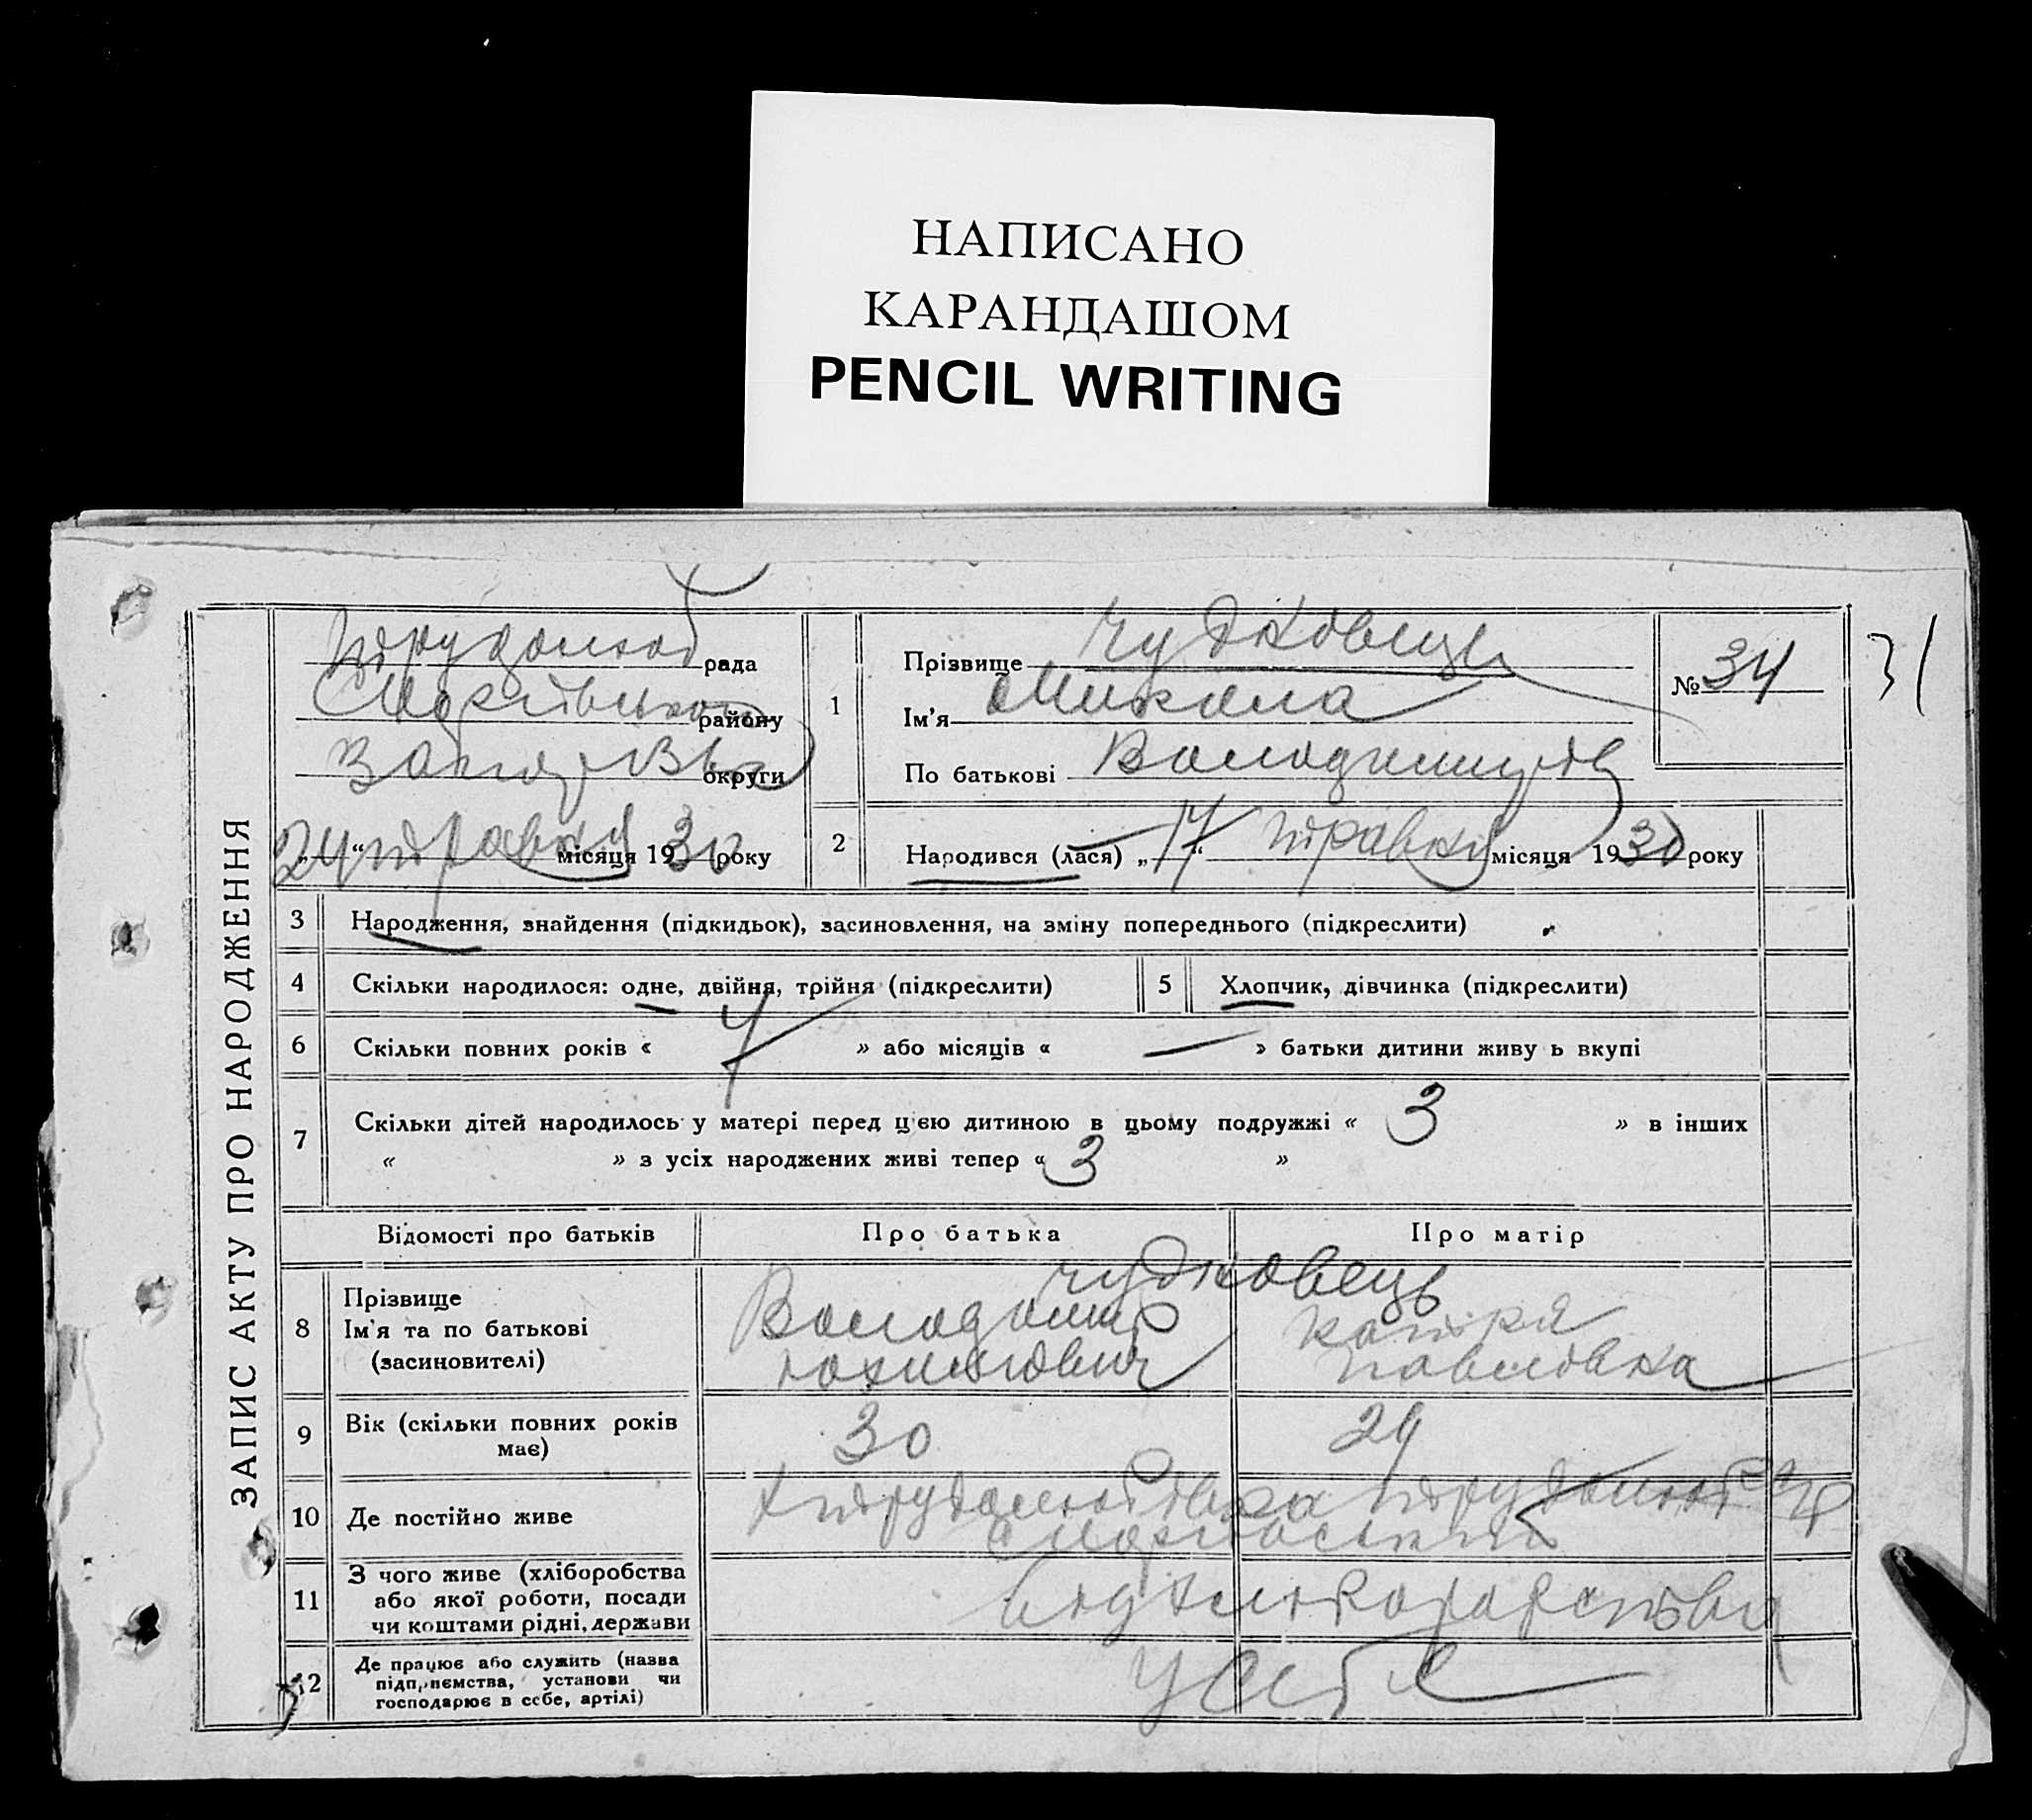 НАПИСАНО
КАРАНДАШОМ
PENCIL WRITING
31
ЗАПИС АКТУ ПРО НАРОДЖЕННЯ
Трудолюб рада
району
округи
24 травня місяця 1930 року
1 Прізвище Чудковець
Ім'я Микола
По батькові Володимирів
№ 34
2 Народився (лася) „17“ травня місяця 1930 року
3 Народження, знайдення (підкидьок), засиновлення, на зміну попереднього (підкреслити)
4 Скільки народилося: одне, двійня, трійня (підкреслити)
5 Хлопчик, дівчинка (підкреслити)
6 Скільки повних років « 7 » або місяців « — » батьки дитини живу ь вкупі
7 Скільки дітей народилось у матері перед цією дитиною в цьому подружжі « 3 » в інших
« » з усіх народжених живі тепер « 3 »
Відомості про батьків Про батька Про матір
8 Прізвище
Ім'я та по батькові
(засиновителі)
Чудковець
Володимир
Юхимович
Катря
Павлівна
9 Вік (скільки повних років
має)
30 29
10 Де постійно живе
Х Трудолюбівка
11 З чого живе (хліборобства
або якої роботи, посади
чи коштами рідні, держави
12 Де працює або служить (назва
підприємства, установи чи
господарює в себе, артілі)
У себе